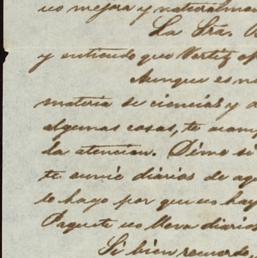 no mejora y naturalmen
La Sra.
y entiendo que Vertiz
Aunque es
materia de ciencias y
algunas cosas, te
da atencion. Dime si
te envié diarios de
lo hago por que no hay
Paquete no lleva diarios
Si bien recuerdo,